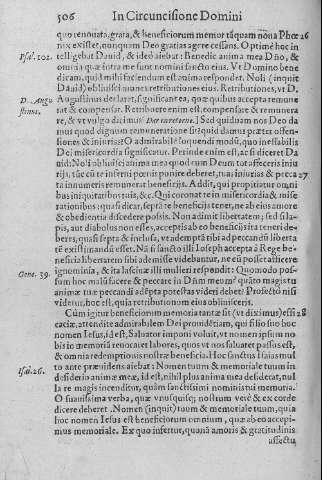 506 In Circuncisione Domini
quo renouata, grata, & beneficiorum memor tãquam noua Phœ 26
nix exislet, nunquam Deo gratias agere cessans. Optimè hoc in
Psal. 102. telligebat Dauid, & ideò aiebat: Benedic anima mea Dño, &
omnia quæ intra me sunt nomini sancto eius. Vt Domino bene
dicam, quid mihi faciendum est anima respondet. Noli (inquit
Dauid) obliuisci omnes retributiones eius. Retributiones, vt D.
D. Augu Augustinus declarat, significant ea, quæ quibus accepta remune
stinus. rant & compensat. Retribuere enim est, compensare & remunera
re, & vt vulgo dicimus Sed quidnam nos Deo da
mus quod dignum remuneratione sit? quid damus præter offen-
siones & iniurias? O admirabilẽ loquendi modũ, quo ineffabilis
Dei misericordia significatur. Perinde enim est, ac si diceret Da
uid: Noli obliuisci anima mea quod cum Deum tot affeceris iniu
rijs, tũc cũ te inferni pœnis punire deberet, tuas iniurias & precà 27
ta innumeris remunerat beneficijs. Addit, qui propitiatur omni
bus iniquitatibus tuis, &c. Qui coronat te in misericordia & mise
rationibus quasi dicat, septã te beneficijs tenet, ne ab eius amore
& obedientia discedere possis. Non adimit libertatem; sed si la-
pis, aut diabolus non esses, acceptis ab eo beneficijs ita teneri de-
beres, quasi septa & inclusa, vt adempta tibi ad peccandũ liberta
te existimandũ esset. Nã si sancto illi Joseph accepta à Rege be-
neficia liberratem sibi ademisse videbantur, ne eũ posset afficere
Gene. 39. ignominia, & ita lasciuæ illi mulieri respondit: Quomodo pos-
sum hoc malũ facere & peccare in Dñm meum? quàto magis tu
anima tuæ peccandi adẽpta potestas videri debet? Profectò nisi
videtur, hoc est, quia retributionum eius obliuisceris.
Cùm igitur beneficiorum memoria tantæ sit (vt diximus) effi 28
caciæ, attendite admirabilem Dei prouidẽtiam, qui filio suo hoc
nomen Iesus, id est, Saluator imponi voluit, vt nomen ipsum no
bis in memoriã reuocaret labores, quos vt nos saluaret passus est,
& omnia redemptionis nostræ beneficia. Hoc sanctus Isaias mul
Isa. 26. to ante præuidens aiebat: Nomen tuum & memoriale tuum in
desiderio animæ meæ, id est, nihil plus anima mea desiderat, nul
la re magis incenditur, quàm sanctissimi nominis tui memoria.
O suauissima verba, quæ vnusquisq; nostrum verè & ex corde
dicere deberet. Nomen (inquit) tuum & memoriale tuum, quia
hoc nomen Iesus est beneficiorum omnium, quæ abs eo accepi-
mus memoriale. Ex quo infertur, quona amoris & gratitudinis
affectu